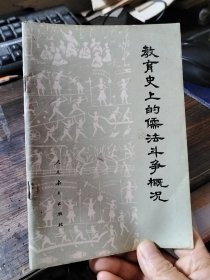 教育史上的儒法斗争概况
人民教育出版社